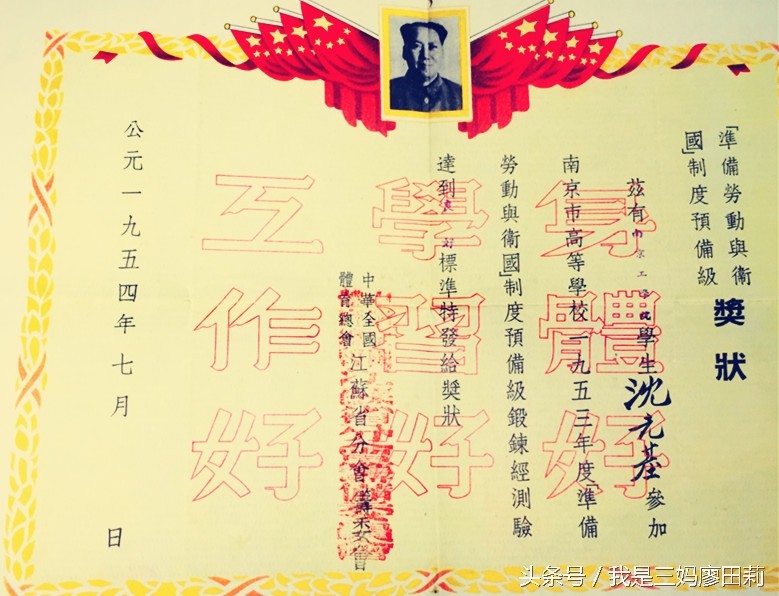 「準備勞動與衛
國」制度預備級
獎狀
茲有南京工學院學生沈元基參加
南京市高等學校一九五三年度「準備
勞動與衛國」制度預備級鍛鍊經測驗
達到良好標準特發給獎狀
中華全國
體育總會
江蘇省分會籌委會
公元一九五四年七月 日
身體好
學習好
工作好
头条号 / 我是三妈廖田莉